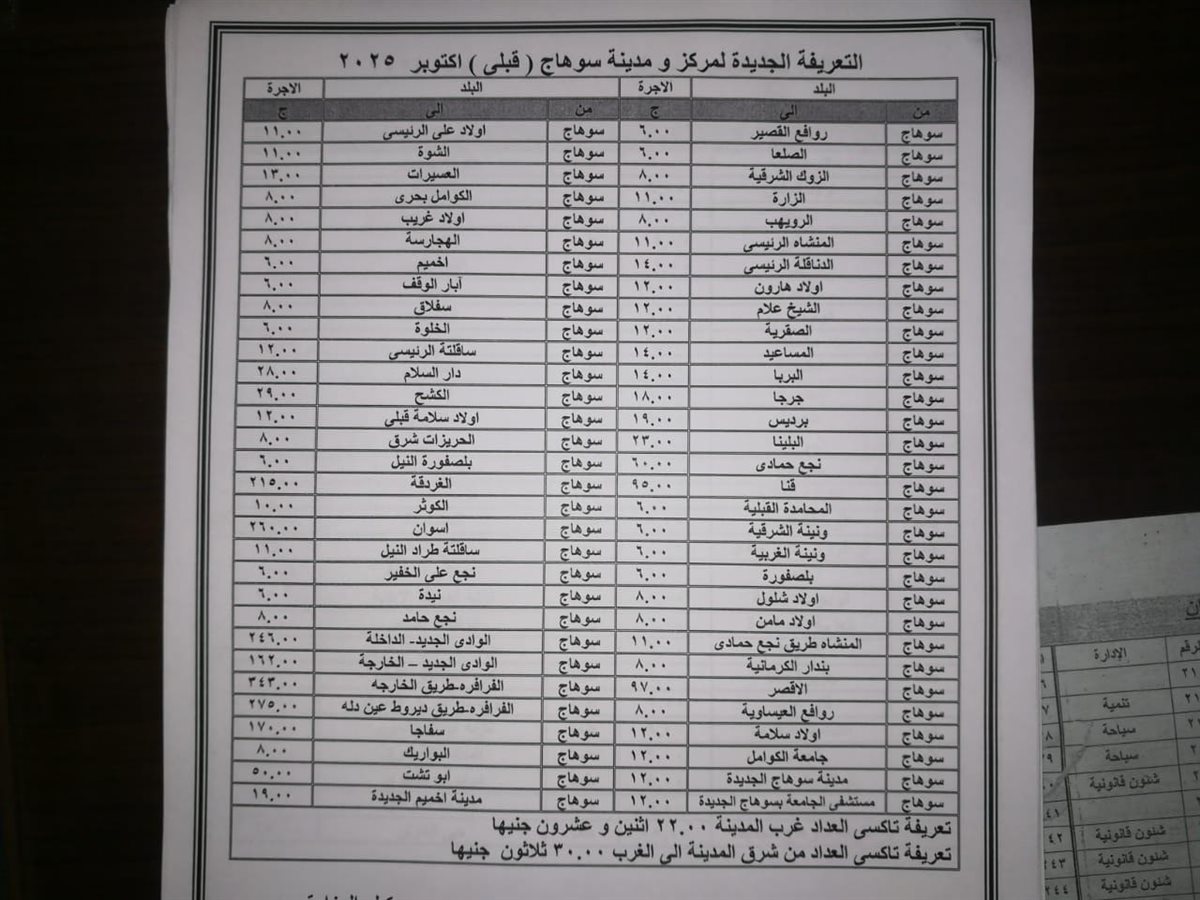 التعريفة الجديدة لمركز و مدينة سوهاج ( قبلى ) اكتوبر ٢٠٢٥
البلد الاجرة البلد الاجرة
من الى ج من الى ج
سوهاج روافع القصير ٦.٠٠ سوهاج اولاد على الرئيسى ١١.٠٠
سوهاج الصلعا ٦.٠٠ سوهاج الشوة ١١.٠٠
سوهاج الزوك الشرقية ٨.٠٠ سوهاج العسيرات ١٣.٠٠
سوهاج الزارة ١١.٠٠ سوهاج الكوامل بحرى ٨.٠٠
سوهاج الرويهب ٨.٠٠ سوهاج اولاد غريب ٨.٠٠
سوهاج المنشاه الرئيسى ١١.٠٠ سوهاج الهجارسة ٨.٠٠
سوهاج الدناقلة الرئيسى ١٤.٠٠ سوهاج اخميم ٦.٠٠
سوهاج اولاد هارون ١٢.٠٠ سوهاج آبار الوقف ٦.٠٠
سوهاج الشيخ علام ١٢.٠٠ سوهاج سفلاق ٨.٠٠
سوهاج الصقرية ١٢.٠٠ سوهاج الخلوة ٦.٠٠
سوهاج المساعيد ١٤.٠٠ سوهاج ساقلتة الرئيسى ١٢.٠٠
سوهاج البربا ١٤.٠٠ سوهاج دار السلام ٢٨.٠٠
سوهاج جرجا ١٨.٠٠ سوهاج الكشح ٢٩.٠٠
سوهاج برديس ١٩.٠٠ سوهاج اولاد سلامة قبلى ١٢.٠٠
سوهاج البلينا ٢٣.٠٠ سوهاج الحريزات شرق ٨.٠٠
سوهاج نجع حمادى ٦٠.٠٠ سوهاج بلصفورة النيل ٦.٠٠
سوهاج قنا ٩٥.٠٠ سوهاج الغردقة ٢١٥.٠٠
سوهاج المحامدة القبلية ٦.٠٠ سوهاج الكوثر ١٠.٠٠
سوهاج ونينة الشرقية ٦.٠٠ سوهاج اسوان ٢٦٠.٠٠
سوهاج ونينة الغربية ٦.٠٠ سوهاج ساقلتة طراد النيل ١١.٠٠
سوهاج بلصفورة ٦.٠٠ سوهاج نجع على الخفير ٦.٠٠
سوهاج اولاد شلول ٨.٠٠ سوهاج نيدة ٦.٠٠
سوهاج اولاد مامن ٨.٠٠ سوهاج نجع حامد ٨.٠٠
سوهاج المنشاه طريق نجع حمادى ١١.٠٠ سوهاج الوادى الجديد- الداخلة ٢٤٦.٠٠
سوهاج بندار الكرمانية ٨.٠٠ سوهاج الوادى الجديد – الخارجة ١٦٢.٠٠
سوهاج الاقصر ٩٧.٠٠ سوهاج الفرافره-طريق الخارجه ٣٤٣.٠٠
سوهاج روافع العيساوية ٨.٠٠ سوهاج الفرافره-طريق ديروط عين دله ٢٧٥.٠٠
سوهاج اولاد سلامة ١٢.٠٠ سوهاج سفاجا ١٧٠.٠٠
سوهاج جامعة الكوامل ١٢.٠٠ سوهاج البواريك ٨.٠٠
سوهاج مدينة سوهاج الجديدة ١٢.٠٠ سوهاج ابو تشت ٥٠.٠٠
سوهاج مستشفى الجامعة بسوهاج الجديدة ١٢.٠٠ سوهاج مدينة اخميم الجديدة ١٩.٠٠
تعريفة تاكسى العداد غرب المدينة ٢٢.٠٠ اثنين و عشرون جنيها
تعريفة تاكسى العداد من شرق المدينة الى الغرب ٣٠.٠٠ ثلاثون جنيها
الإدارة
تنمية
سياحة
سياحة
شئون قانونية
شئون قانونية
شئون قانونية
شئون قانونية